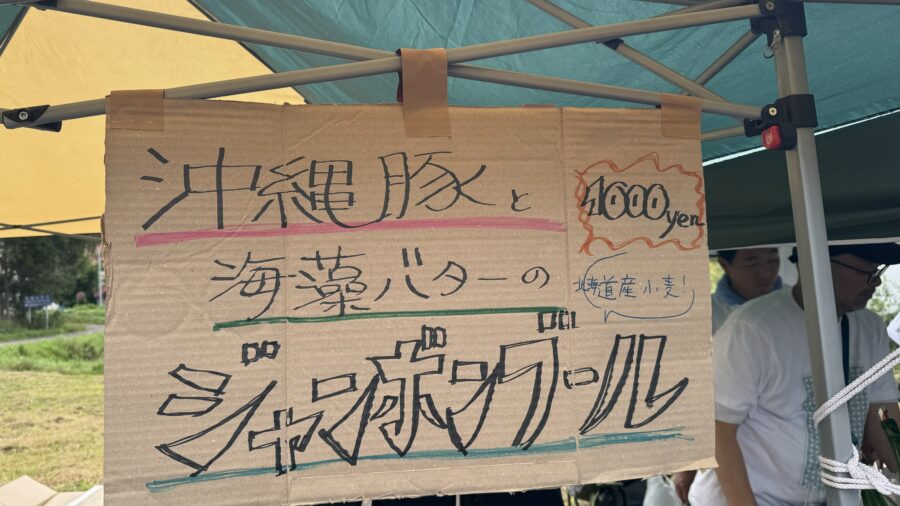 沖縄豚と
1000yen
海藻バターの
北海道産小麦!
ジャンボンブール